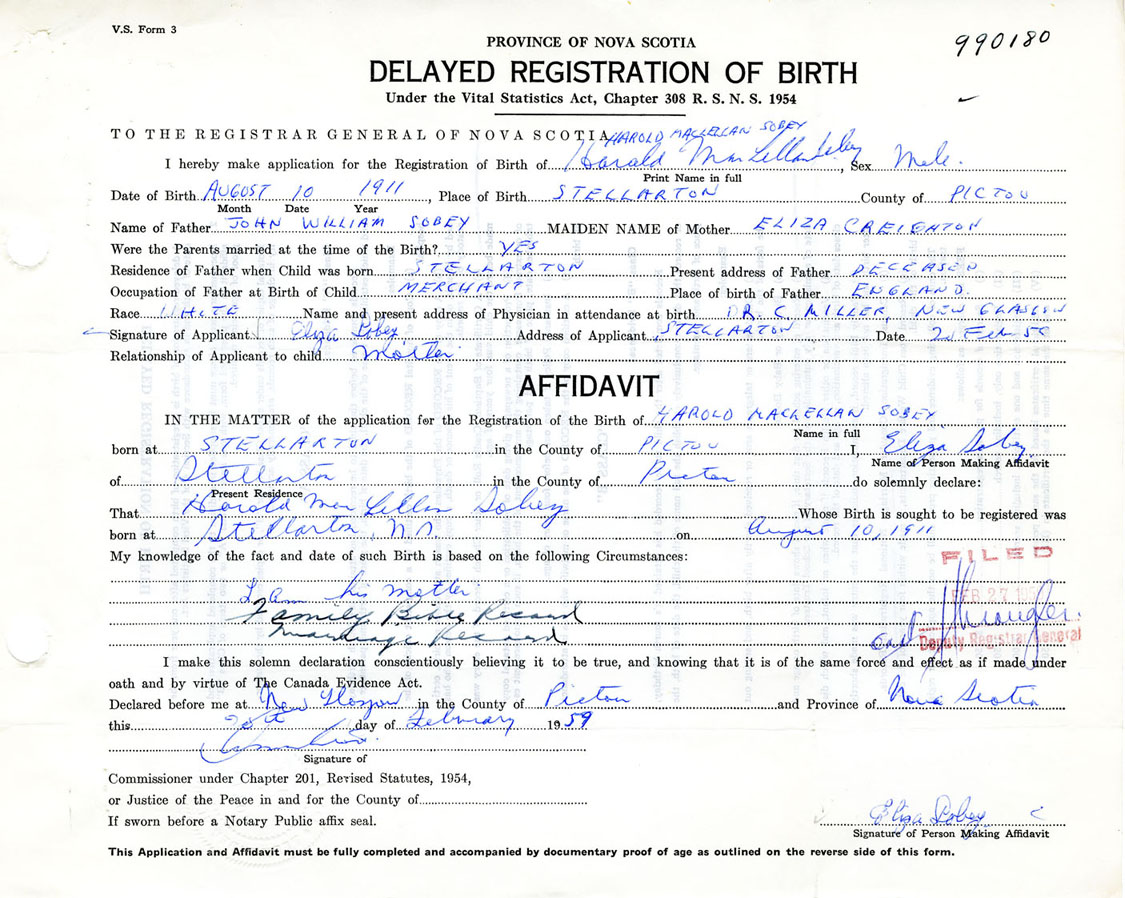 V.S. Form 3
990180
PROVINCE OF NOVA SCOTIA
DELAYED REGISTRATION OF BIRTH
Under the Vital Statistics Act, Chapter 308 R. S. N. S. 1954
TO THE REGISTRAR GENERAL OF NOVA SCOTIA HAROLD MACLELLAN SOBEY
I hereby make application for the Registration of Birth of Harold MacLellan Sobey, Sex Male.
Print Name in full
Date of Birth AUGUST 10 1911, Place of Birth STELLARTON County of PICTOU
Month Date Year
Name of Father JOHN WILLIAM SOBEY MAIDEN NAME of Mother ELIZA CREIGHTON
Were the Parents married at the time of the Birth? YES
Residence of Father when Child was born STELLARTON Present address of Father DECEASED
Occupation of Father at Birth of Child MERCHANT Place of birth of Father ENGLAND.
Race WHITE Name and present address of Physician in attendance at birth DR. C. MILLER, NEW GLASGOW
Signature of Applicant Eliza Sobey Address of Applicant STELLARTON Date Feb
Relationship of Applicant to child Mother
AFFIDAVIT
IN THE MATTER of the application for the Registration of the Birth of HAROLD MACLELLAN SOBEY
Name in full
born at STELLARTON in the County of PICTOU I, Eliza Sobey
Name of Person Making Affidavit
of Stellarton in the County of Pictou do solemnly declare:
Present Residence
That Harold MacLellan Sobey Whose Birth is sought to be registered was
born at Stellarton, N.S. on August 10, 1911
My knowledge of the fact and date of such Birth is based on the following Circumstances:
FILED
I am his mother
FEB 27
Family Bible Record
Marriage Record
Deputy Registrar General
I make this solemn declaration conscientiously believing it to be true, and knowing that it is of the same force and effect as if made under
oath and by virtue of The Canada Evidence Act.
Declared before me at New Glasgow in the County of Pictou and Province of Nova Scotia
this 20th day of February 1959
Signature of
Commissioner under Chapter 201, Revised Statutes, 1954,
or Justice of the Peace in and for the County of
If sworn before a Notary Public affix seal.
Eliza Sobey
Signature of Person Making Affidavit
This Application and Affidavit must be fully completed and accompanied by documentary proof of age as outlined on the reverse side of this form.